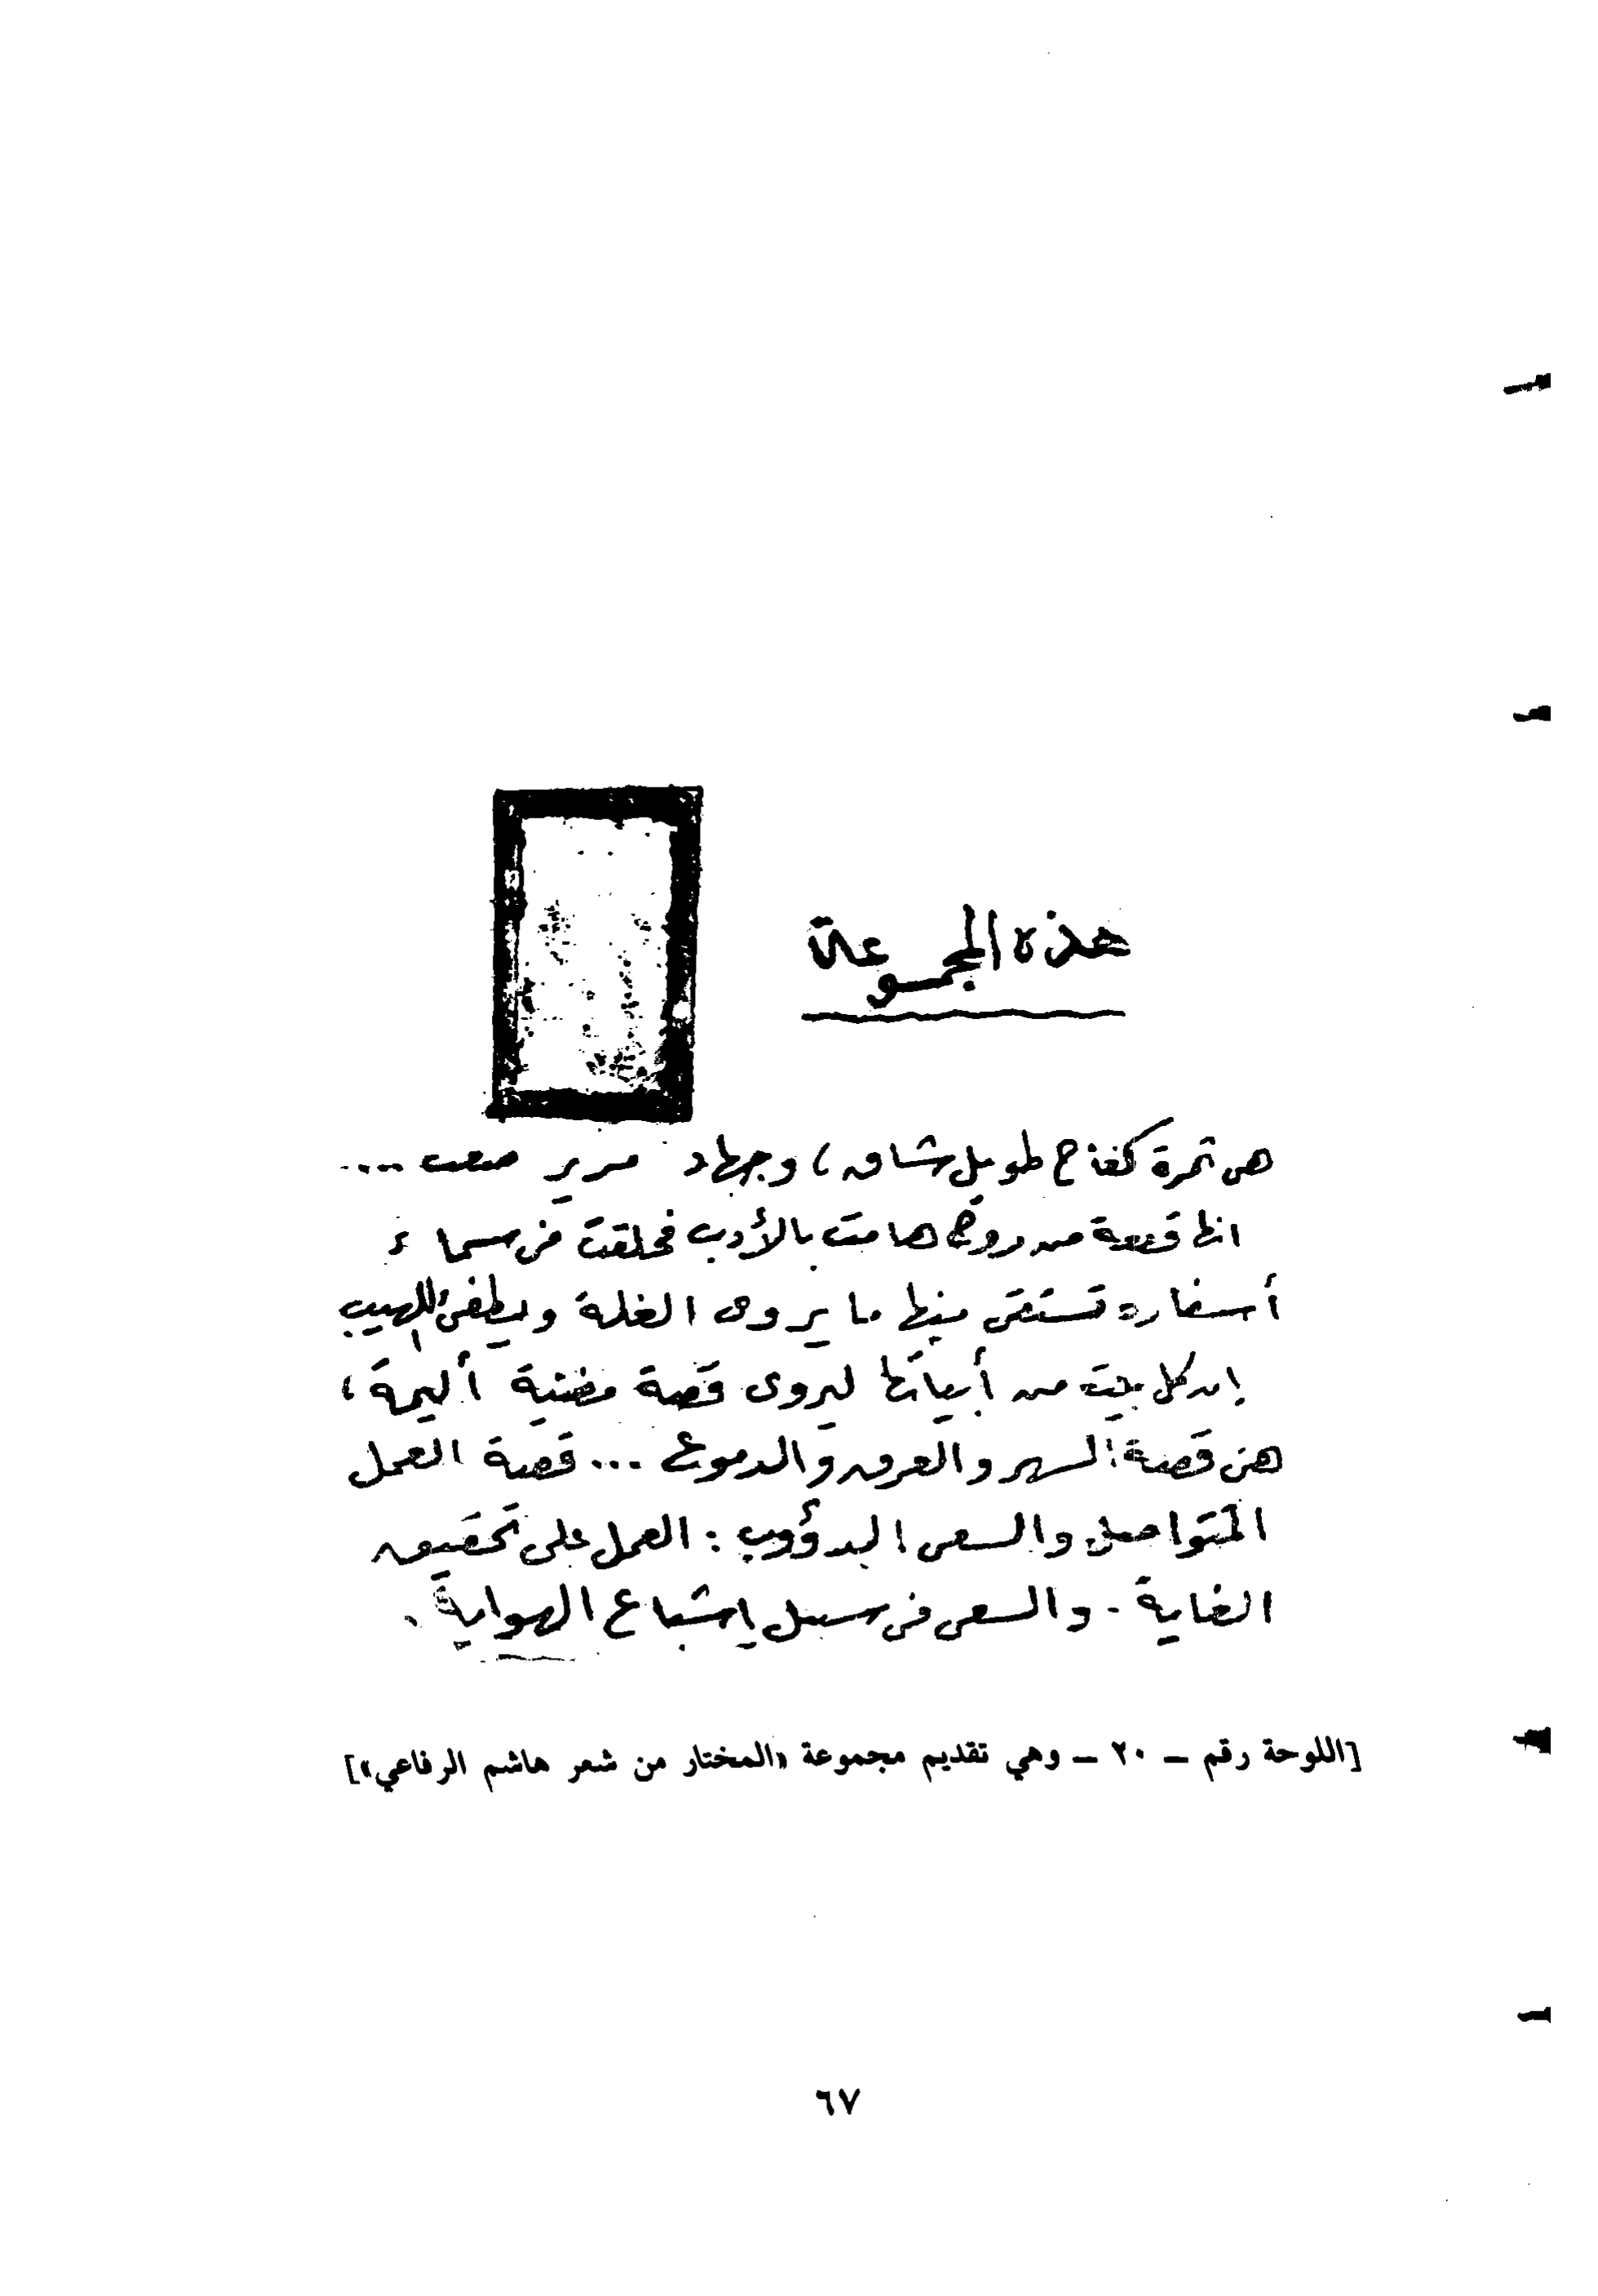 هذه المجموعة
هى ثمرة كفاح طويل شاق، وجهاد مرير صعب ....
انها قطعة من روح هامت بالأدب فحلقت فى سماء
أسفاره تستقى منها ما يروى الغلة ويطفئ اللهيب
إن كل بيت من أبياتها ليروى قصة مضنية أليمة،
هى قصة السهر والعرق والدموع ... قصة العمل
المتواصل والسعى الدؤوب : العمل على تحقيق
الغاية . والسعى فى سبيل إشباع الهواية .
[اللوحة رقم – ٢٠ – وهي تقديم مجموعة «المختار من شعر هاشم الرفاعي»]
٦٧